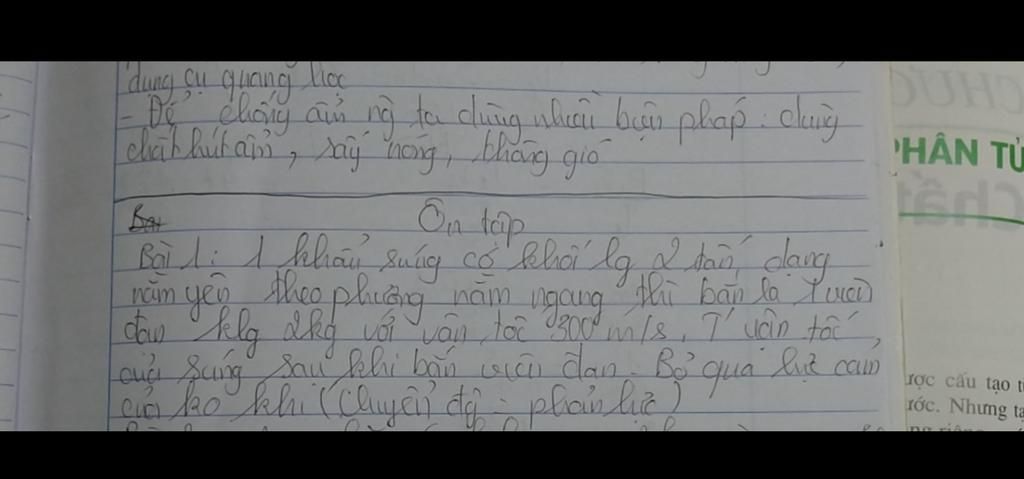 dụng cụ quang học
- Để chống ẩm ng ta dùng nhiều biện pháp: dùng
chất hút ẩm, sấy nóng, thông gió
Ôn tập
Bài 1: 1 khẩu súng có khối lg 2 tấn, đang
nằm yên theo phương nằm ngang thì bắn ra 1 viên
đạn klg 2kg với vận tốc 300 m/s. T' vận tốc
của súng sau khi bắn viên đạn. Bỏ qua lực cản
của ko khí (Chuyển độ = phản lực)
CHƯƠ
PHÂN TỬ
Chất
ược cấu tạo t
ước. Nhưng ta